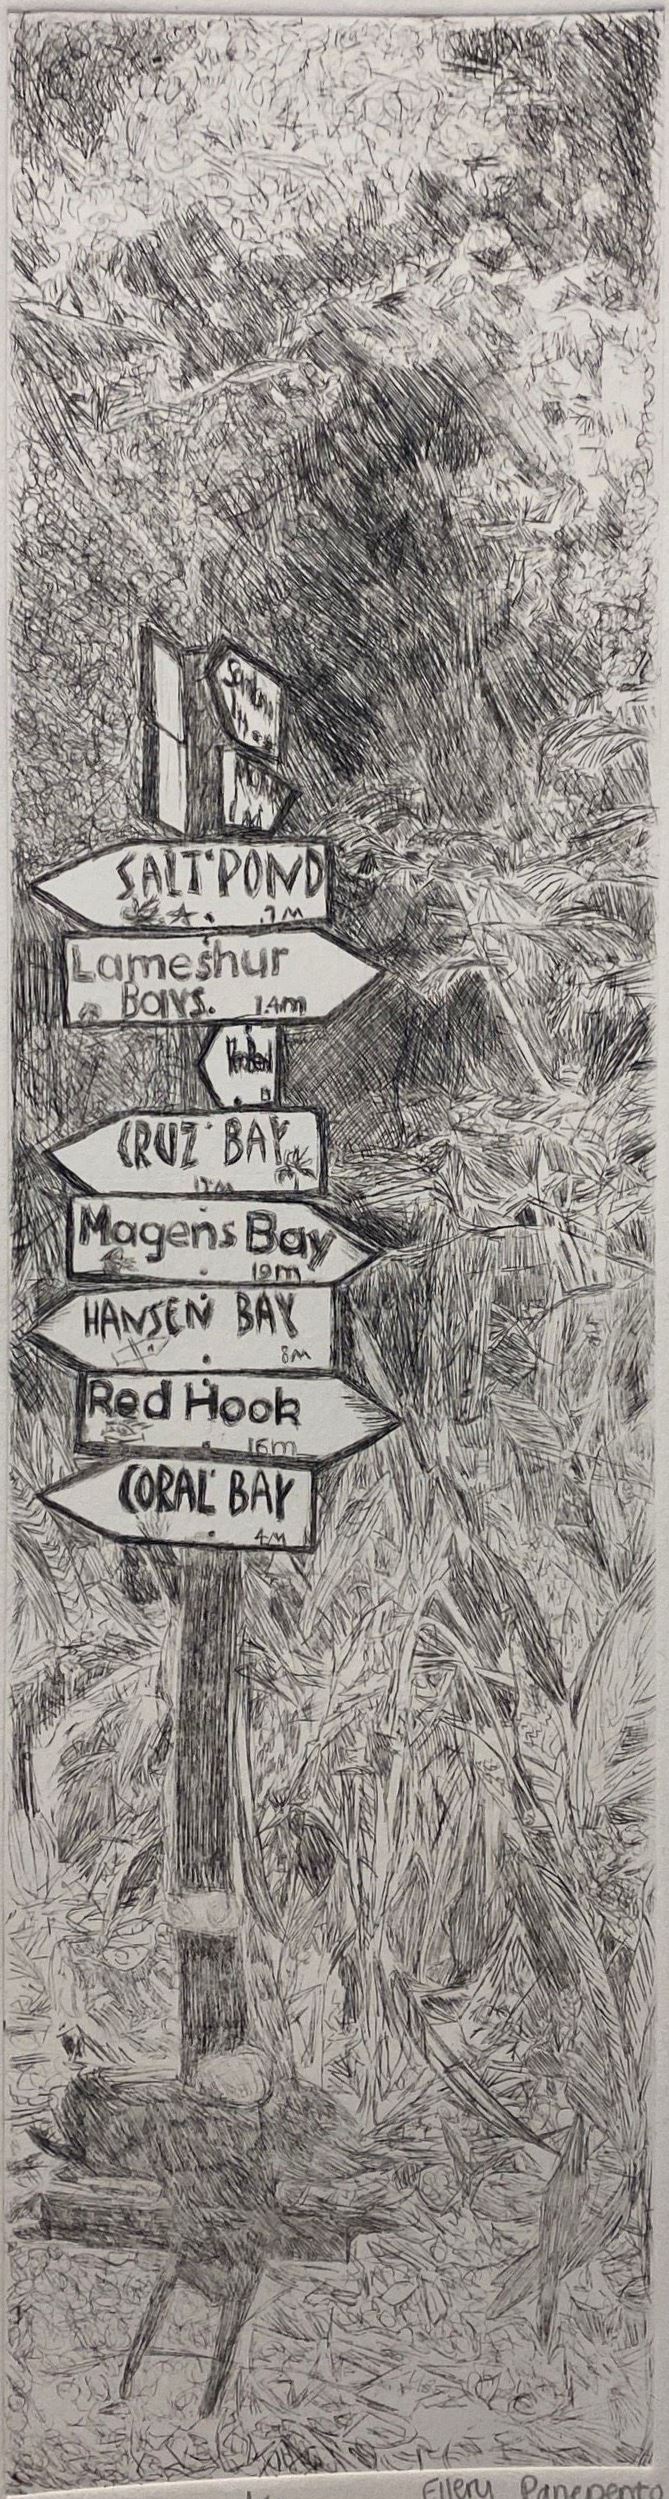 SALT POND
.7M
Lameshur
Bays.
1.4m
CRUZ BAY
17M
Magens Bay
19m
HANSEN BAY
8M
Red Hook
16m
CORAL BAY
4M
Ellery Panepento